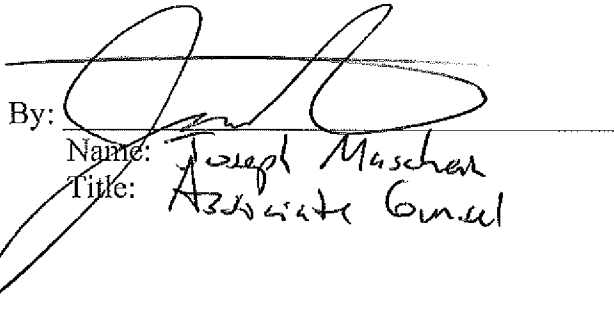 By:
Name: Joseph Maschan
Title: Associate Counsel